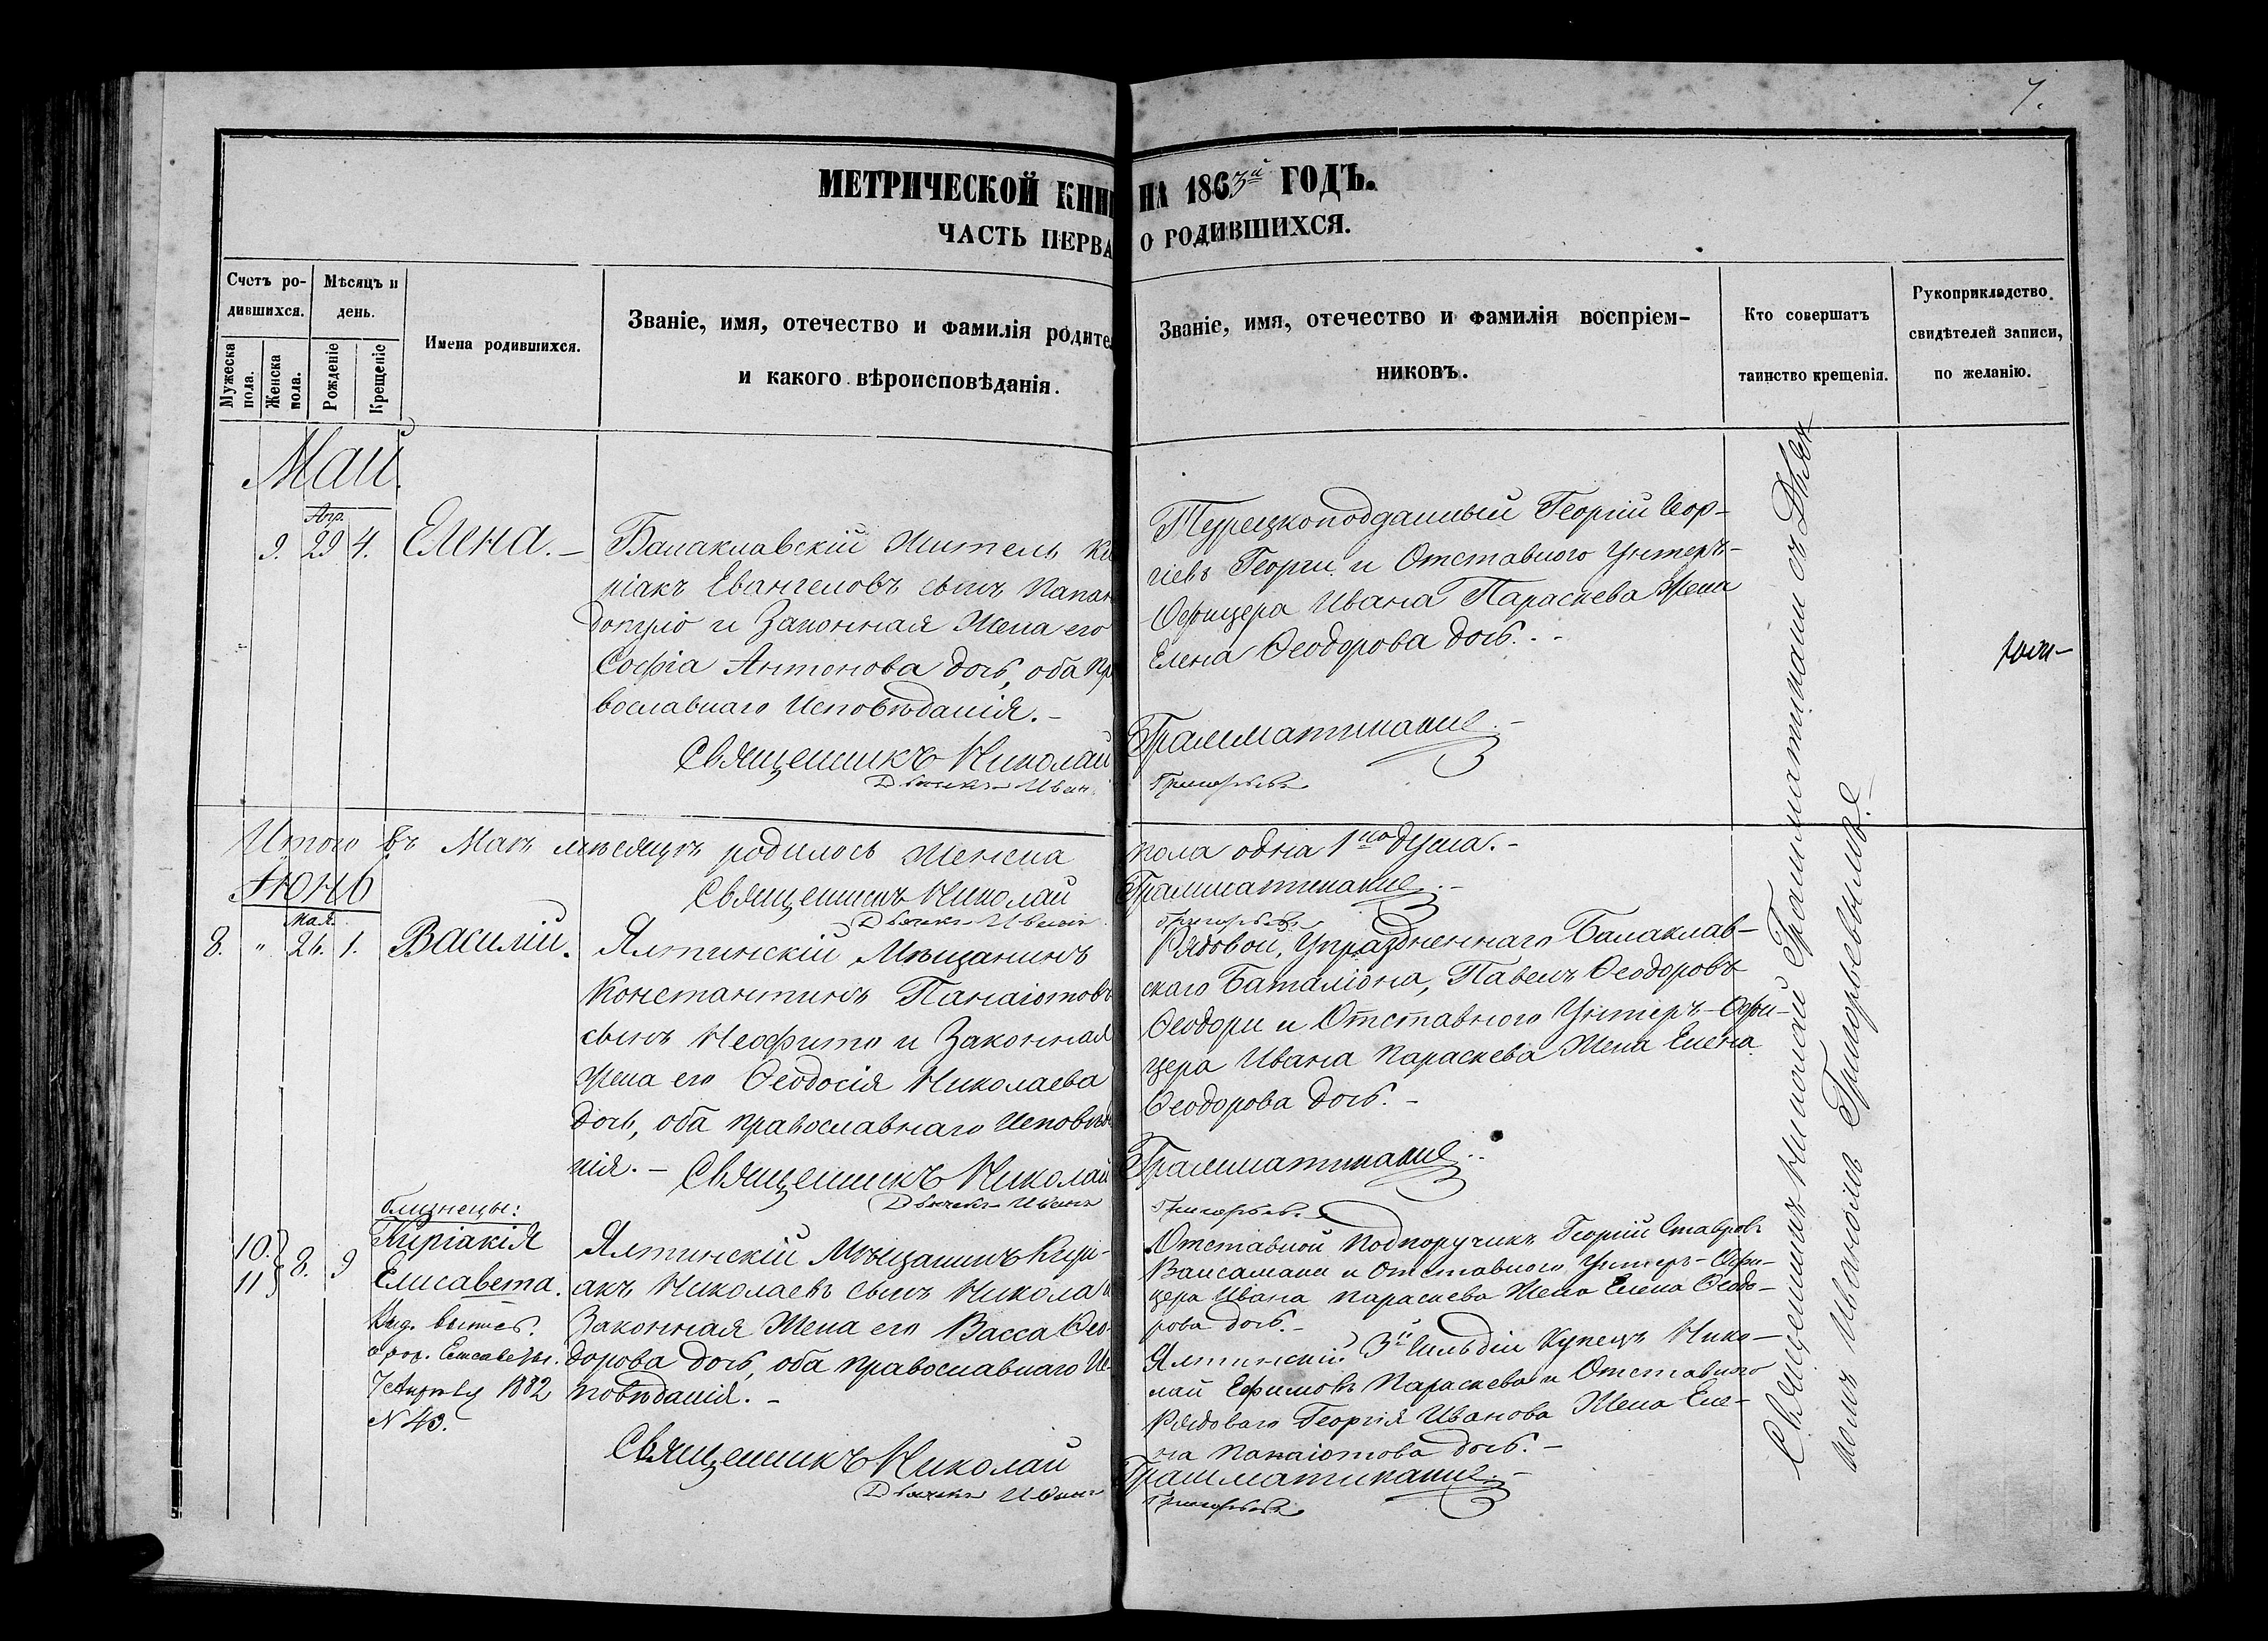 7.
МЕТРИЧЕСКОЙ КНИ НА 1863й ГОДЪ.
ЧАСТЬ ПЕРВА О РОДИВШИХСЯ.
Счетъ ро-
дившихся.
Мужеска
пола.
Женска
пола.
Мѣсяцъ и
день.
Рожденіе
Крещеніе
Имена родившихся.
Званіе, имя, отечество и фамилія родите
и какого вѣроисповѣданія.
Званіе, имя, отечество и фамилія воспріем-
никовъ.
Кто совершатъ
таинство крещенія.
Рукоприкладство
свидѣтелей записи,
по желанію.
Май
Апр.
9. 29 4. Елена. –
Балаклавскій Житель Ки
ріакъ Евангеловъ сынъ Папан
допуло и Законная Жена его
Софіа Антонова дочь, оба Пр
вославнаго Исповѣданія. –
Священникъ Николай
Дьячекъ Иван
Турецкоподданный Георгій Геор-
гіевъ Георги и Отставного Унтеръ-
Офицера Ивана Параскева Жена
Елена Ѳеодорова дочь. -
Грамматикакие. –
Григорьевъ
Итого въ Маѣ мѣсяцѣ родилось Женска
пола одна 1но душа. –
Священникъ Николай
Грамматикакие. –
Дьячекъ Иванъ
Григорьевъ
Іюнь
Мая.
8. " 26. 1. Василій.
Ялтинскій Мѣщанинъ
Константинъ Панаіотовъ
сынъ Неофито и Законная
Жена его Ѳеодосія Николаева
Дочь, оба православнаго Исповѣд
нія. – Священникъ Николай
Дьячекъ Иванъ
Рядовой, Упраздненнаго Балаклав-
скаго Баталіона, Павелъ Ѳеодоровъ
Ѳеодори и Отставного Унтеръ-Офи-
цера Ивана Параскева Жена Елена
Ѳеодорова дочь. –
Грамматикакие.
Григорьевъ
близнецы:
10. 11 8. 9
Киріакія
Елисавета.
Выд.
о рож. Елисаветы.
7 Апрѣля 1882
N 43.
Ялтинскій Мѣщанинъ Кирі-
акъ Николаевъ сынъ Никола и
Законная Жена его Васса Ѳео-
дорова дочь, оба православнаго Ис
повѣданія. –
Священникъ Николай
Дьячекъ Иванъ
Отставной Подпоручикъ Георгій Ставровъ
Валсамаки и Отставного Унтеръ-Офи-
цера Ивана Параскева Жена Елена Ѳеодо-
рова дочь. –
Ялтинскій 3й Гильдіи Купецъ Нико-
лай Ефимовъ Параскева и Отставного
Рядоваго Георгія Иванова Жена Еле-
на Панаіотова дочь. –
Грамматикакие. –
Григорьевъ
Священникъ Николай Грамматикаки съ Дьяч
комъ Иваномъ Григорьевымъ. –